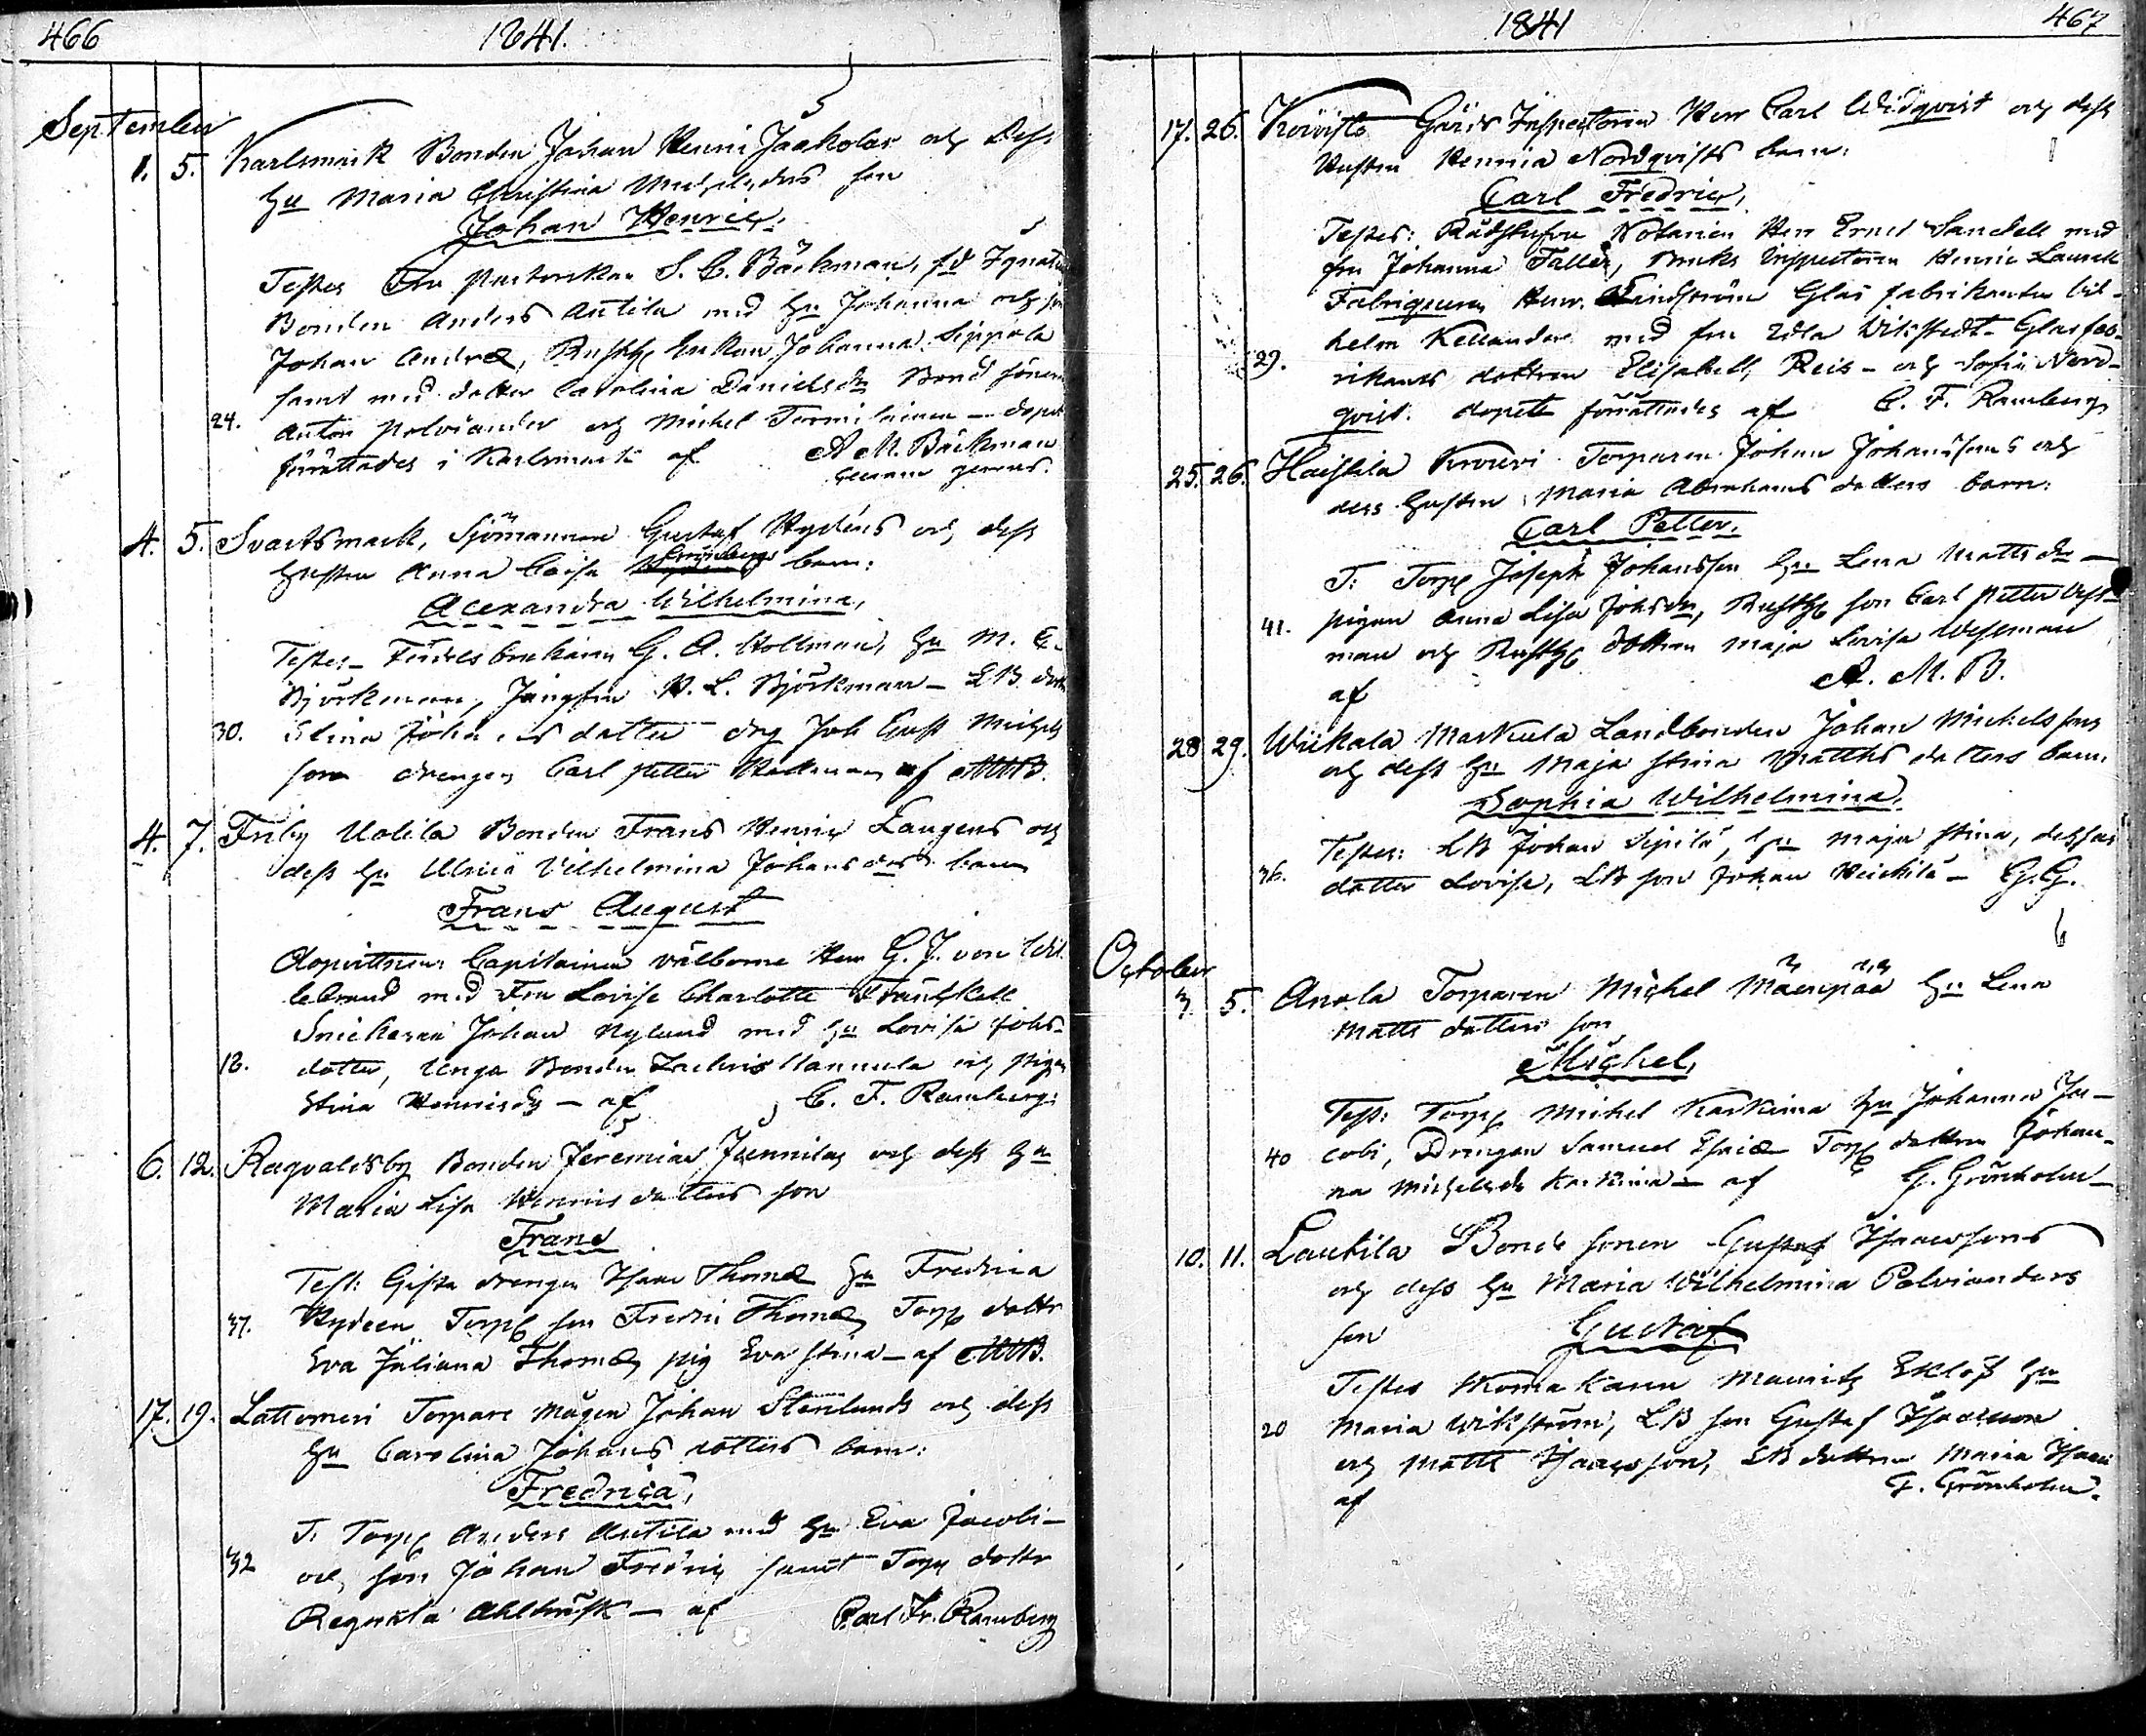 466 1841.
September
1. 5. Karlsmark Bonden Johan Henric Jaakolas och dess
hu Maria Christina Michelsdrs son
Johan Henric.
Testes Fru Pastorskan S. C. Bäckman,
Bonden Anders Antila med hu Johanna och
Johan Andreæ, Enkan Johanna Seppälä
samt med dotter Carolina Danielsdr Bond sönerne
24. Anton Polviander och Michel dopet
förrättades i Karlsmark af A. M. Bäckman
4. 5. Svartsmark, Sjömannen Gustaf Hydéns och dess
hustru Anna Caisa barn:
Alexandra Wilhelmina,
Testes G. A. Hollman, hu M. C.
Björkman, Jungfru H. L. Björkman - LB dottr
30. Elina Johansdotter drg Joh Gust Michels
son drengen Carl Petter af AMB.
4. 7. Friby Uolila Bonden Frans Henric Laugens och
dess hu Ulrica Vilhelmina Johansdotters barn
Frans August
Dopvittnen: Capitainen välborne Herr G. J. von Wil-
lebrand med Fru Lovisa Charlotte
Snickaren Johan Nylund med hu Lovisa Johs-
18. dotter, Unga Bonden Mannula och pigan
Stina Henricsdr - af C. F. Ramberg.
6. 12. Ragvaldsby Bonden Jeremias Junnilas och dess hu
Maria Lisa Henricsdotters son
Frans
Test: Gifta drengen Isaac Thomæ hu Fredrica
37. Hydeen Torp son Fredric Thomæ, Torp dottr
Eva Juliana Thomæ, pig Eva Stina - af AMB.
17. 19. Lattomeri Torpare mågen Johan Stenlunds och dess
hu Carolina Johansdotters barn:
Fredrica,
T: Torp Anders Antila med hu Eva Jacobi -
32 och son Johan Fredric samt Torp dottr
Regina - af Carl Fr. Ramberg
1841 467
17. 26. Koivisto Gårds Inspectoren Herr Carl Widqvist och dess
Hustru Henrica Nordqvists barn:
Carl Fredric,
Testes: Rådstufvu Notarien Herr Ernst Sandell med
fru Johanna Faller, Bruks Inspectoren Henric Laurell
Fabriqueuren Herr Lindström Glas fabrikanten Vil-
helm Kellander med fru Edla Wikstedt - Glasfab-
29. rikants dottren Elisabeth Reis - och Sofia Nord-
qvist. dopet förrättades af C. F. Ramberg
25. 26. Haistila Krouvi Torparen Johan Johanssons och
dess hustru Maria Abrahams dotters barn:
Carl Petter.
T: Torp Joseph Johansson hu Lena Matts dr -
41. pigan Anna Lisa Johsdr, Rusth son Carl Petter West-
man och Rusth dottren Maja Lovisa Westman
af A. M. B.
28 29. Wiikala Markula Landbonden Johan Michelssons
och dess hu Maja Stina Matthsdotters barn.
Sophia Wilhelmina.
Testes: LB Johan Sipilä, hu Maja Stina, dess
36. dotter Lovisa, LB son Johan Heickilä - G. G.
October
3. 5. Anola Torparen Michel Mäenpää hu Lena
Matts dotters son
Michel,
Test: Torp Michel Karkima hu Johanna Ja-
40 cobi, Drengen Samuel Esaiæ Torp dottren Johan-
na Michelsdr Karkima - af G. Grönholm -
10. 11. Lautila Bonde sonen Gustaf Isaacssons
och dess hu Maria Wilhelmina Polvianders
son Gustaf
Testes Skomakaren Mauritz Eklöf hu
20 Maria Wikström, LB son Gustaf Isacsson
och Matts Isaacsson, LB dottren Maria
af G. Grönholm.